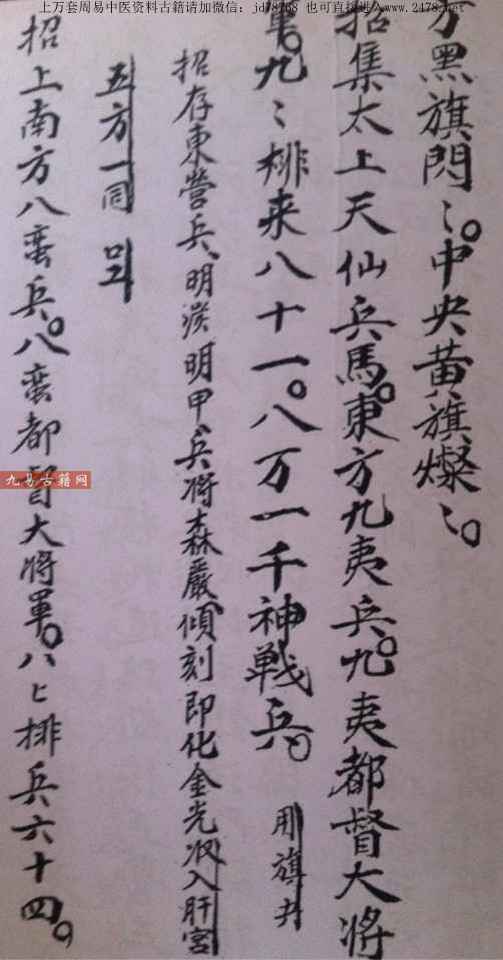 上万套周易中医资料古籍请加微信：jd78768 也可直接进入www.2478.net
方黑旗閃〻。中央黄旗燦〻。
招集太上天仙兵馬。東方九夷兵。九夷都督大将
軍。九〻排来八十一。八万一千神戦兵。用旗
招存東營兵、明 明甲、兵将森嚴、傾刻即化金光収入肝宮
五方一同
招上南方八蛮兵。八蛮都督大将軍。八〻排兵六十四。
九易古籍网